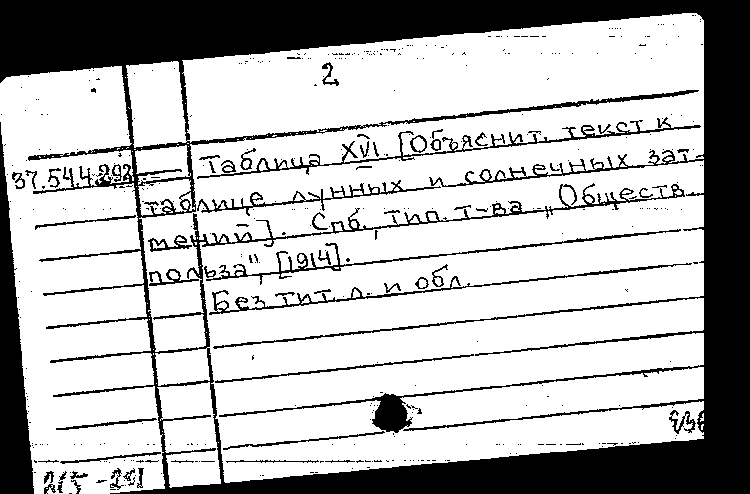 2
37.54.4.292 Таблица XVI. [Объяснит. текст к
таблице лунных и солнечных зат-
мений]. Спб., тип. т-ва „Обществ.
польза", [1914].
Без тит. л. и обл.